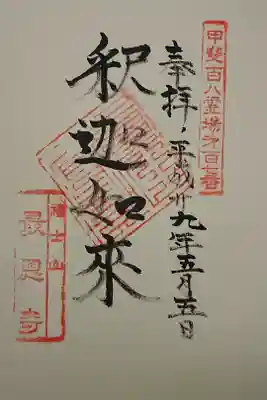 甲斐百八霊場才百七番
奉拝、平成廿九年五月五日
釈迦如來
福士山
最恩寺